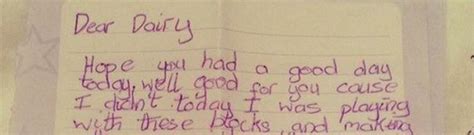 Dear Dairy
Hope you had a good day
today, well good for you cause
I didn't today I was playing
with these blocks and making